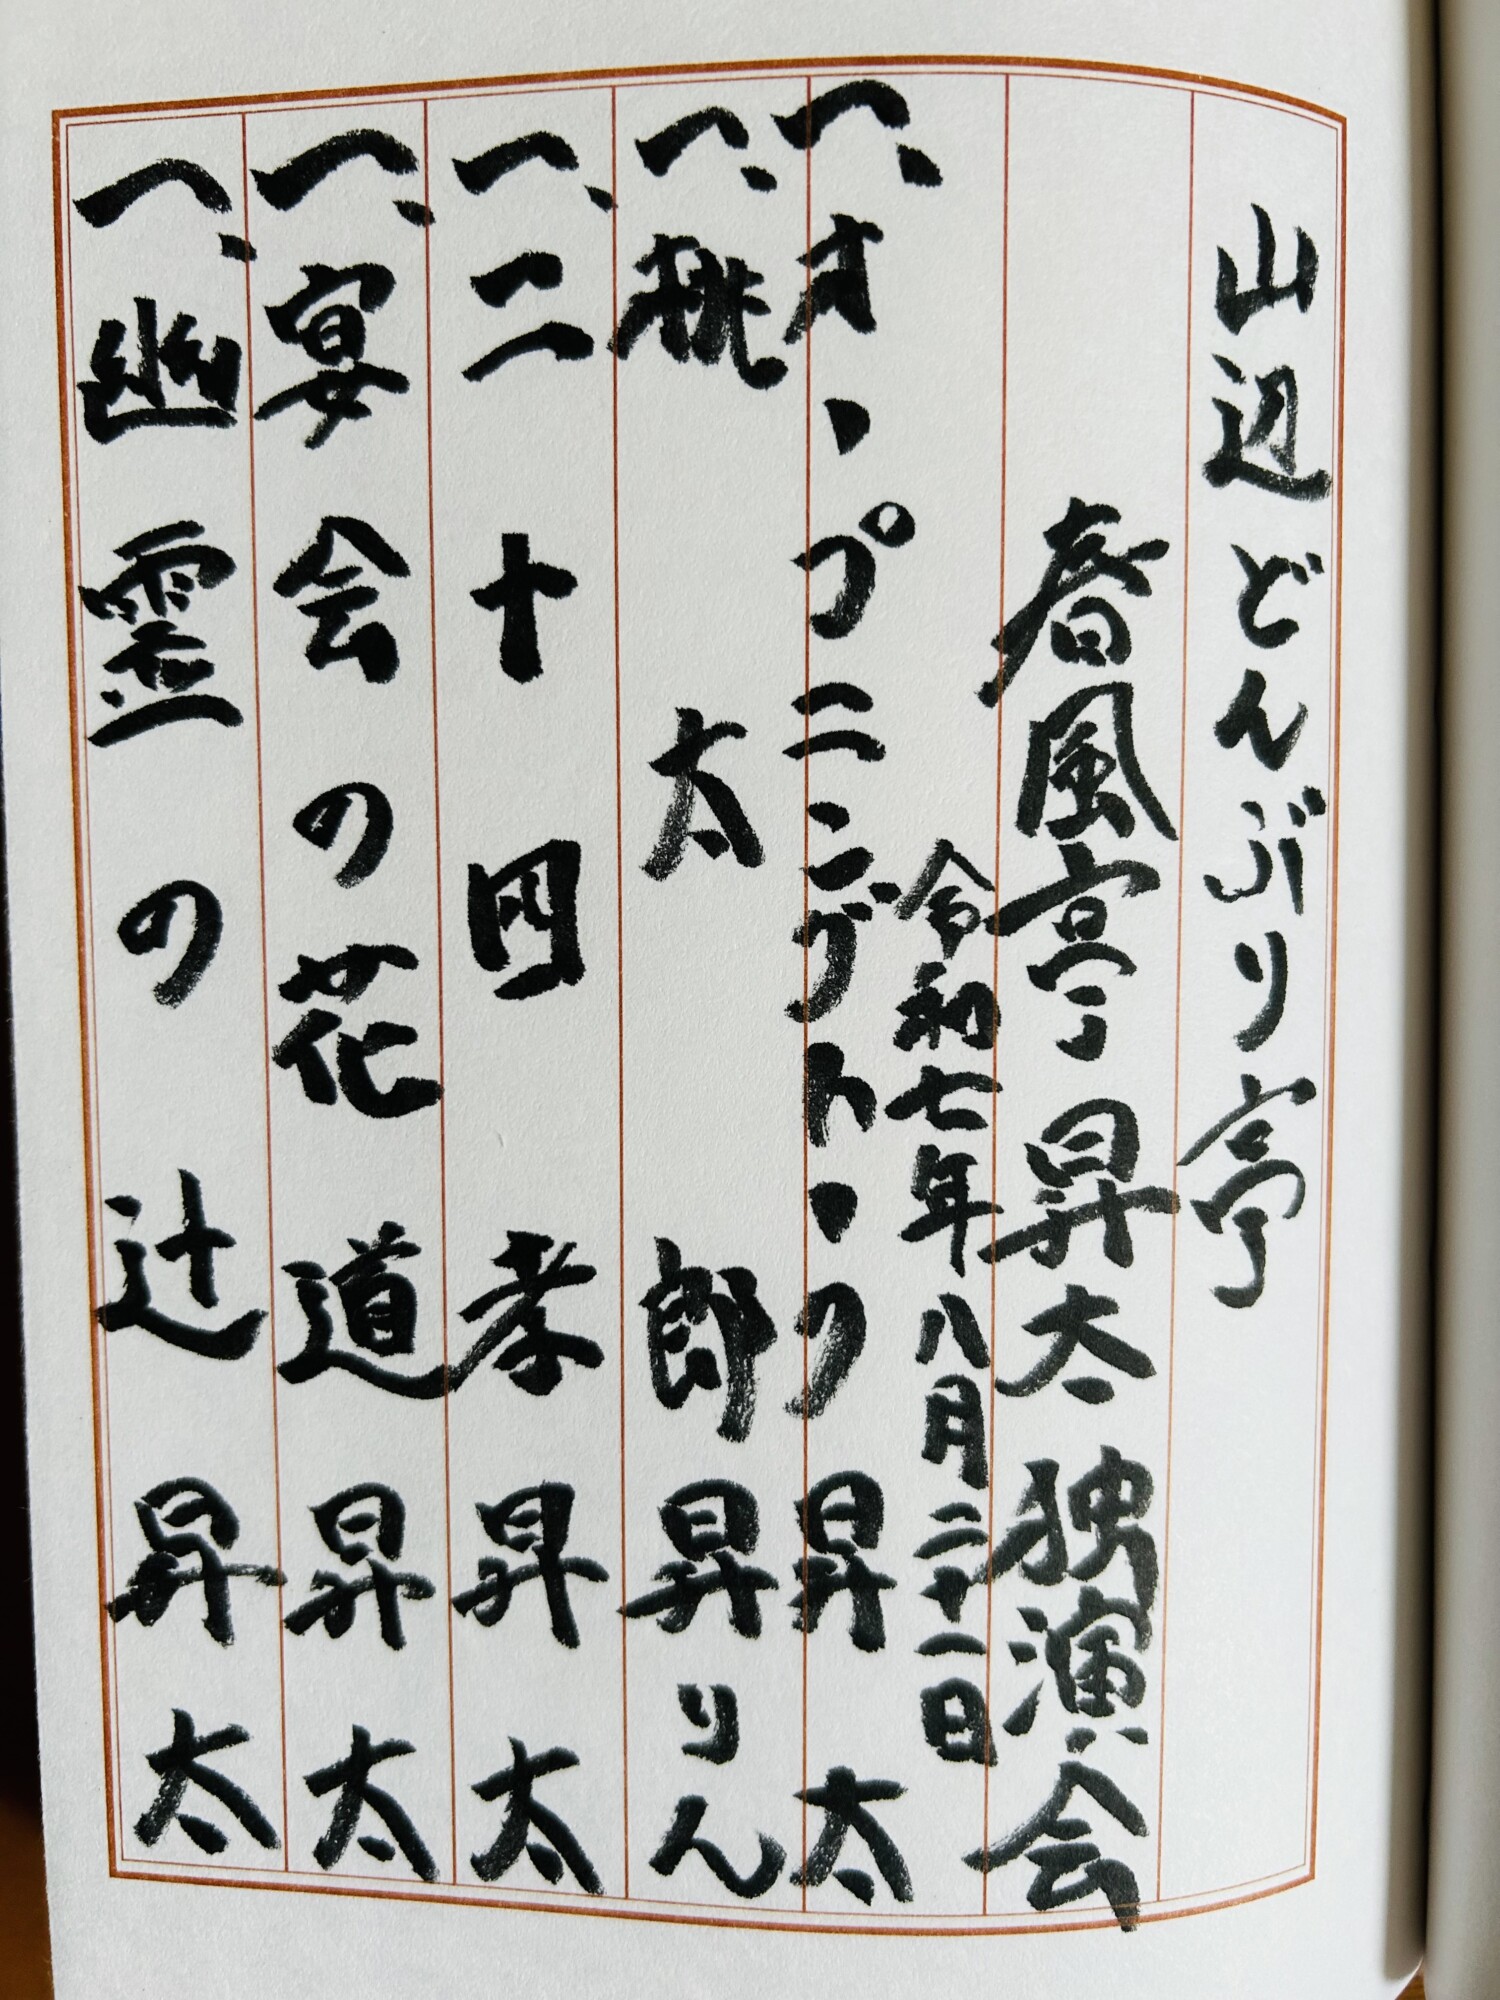 山辺どんぶり亭
春風亭昇太独演会
令和七年八月二十一日
一、オープニングトーク 昇太
一、桃太郎 昇りん
一、二十四孝 昇太
一、宴会の花道 昇太
一、幽霊の辻 昇太